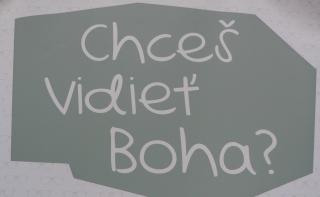 Chceš
vidieť
Boha?